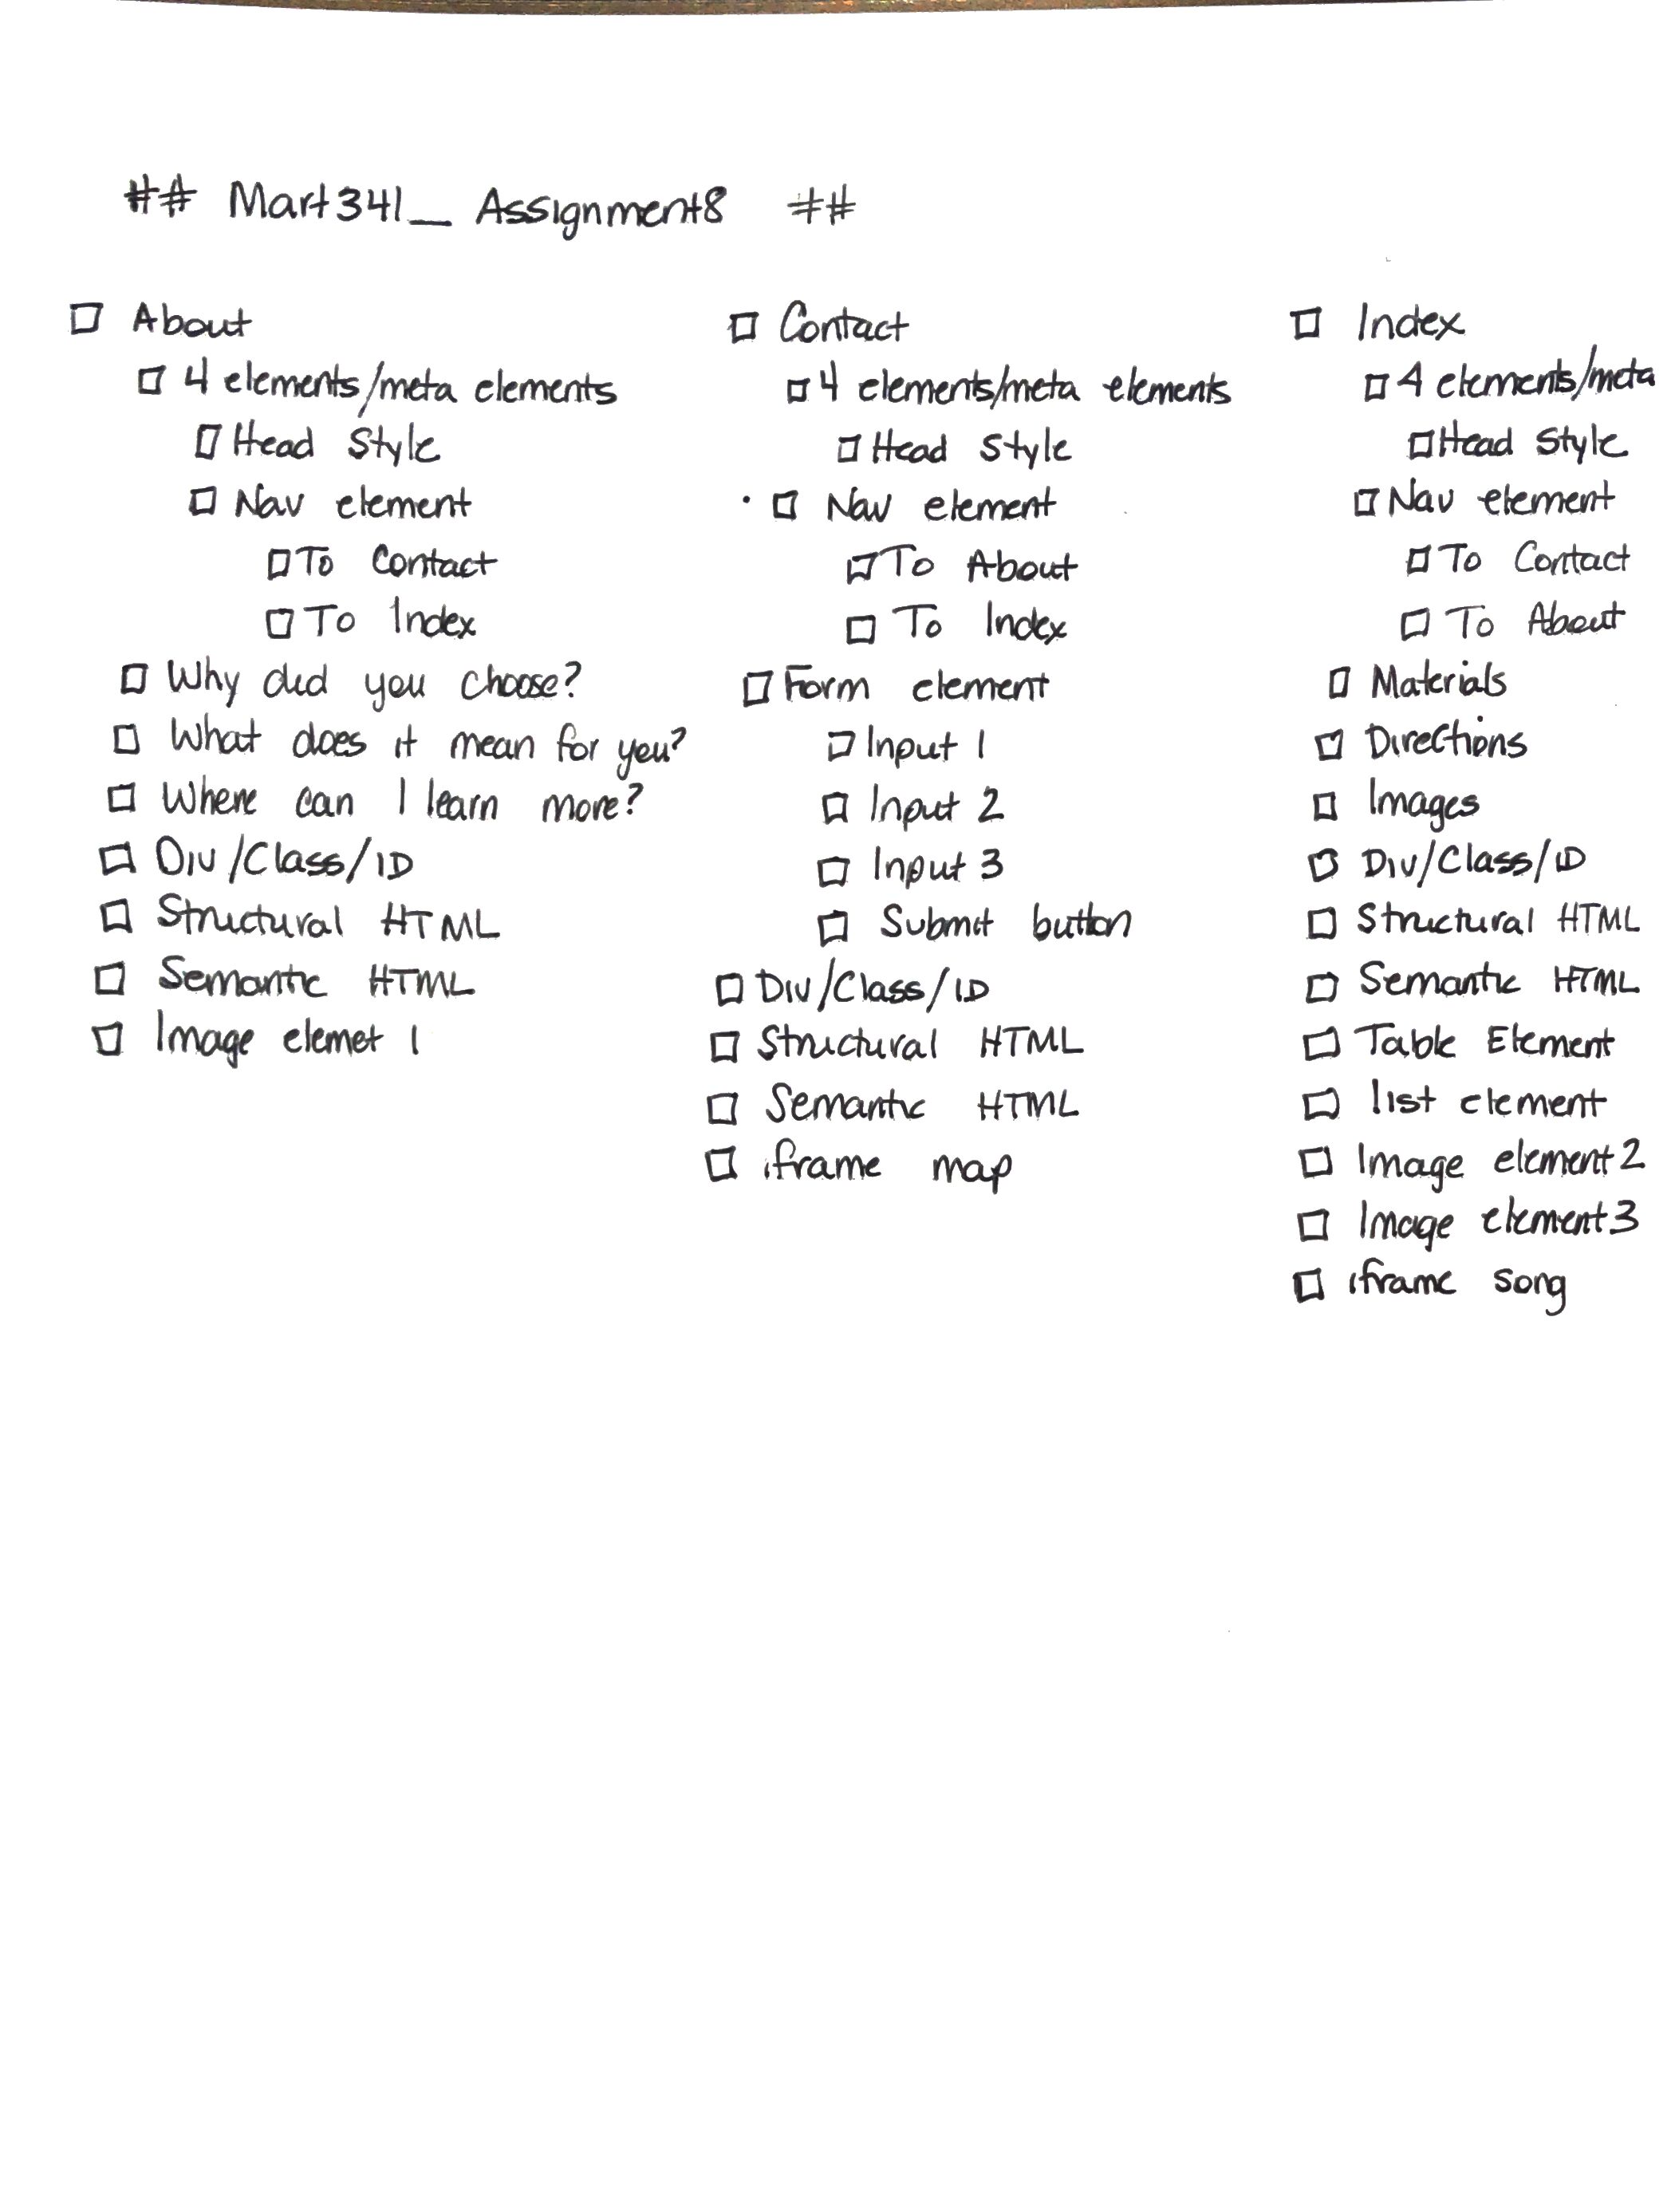 ## Mart341_ Assignment8 ##
□ About
□ 4 elements/meta elements
□ Head Style
□ Nav element
□ To Contact
□ To Index
□ Why did you choose?
□ What does it mean for you?
□ Where can I learn more?
□ Div/Class/ID
□ Structural HTML
□ Semantic HTML
□ Image elemet 1
□ Contact
□ 4 elements/meta elements
□ Head Style
· □ Nav element
□ To About
□ To Index
□ Form element
□ Input 1
□ Input 2
□ Input 3
□ Submit button
□ Div/Class/ID
□ Structural HTML
□ Semantic HTML
□ iframe map
□ Index
□ 4 elements/meta
□ Head Style
□ Nav element
□ To Contact
□ To About
□ Materials
□ Directions
□ Images
□ Div/Class/ID
□ Structural HTML
□ Semantic HTML
□ Table Element
□ list element
□ Image element2
□ Image element3
□ iframe song